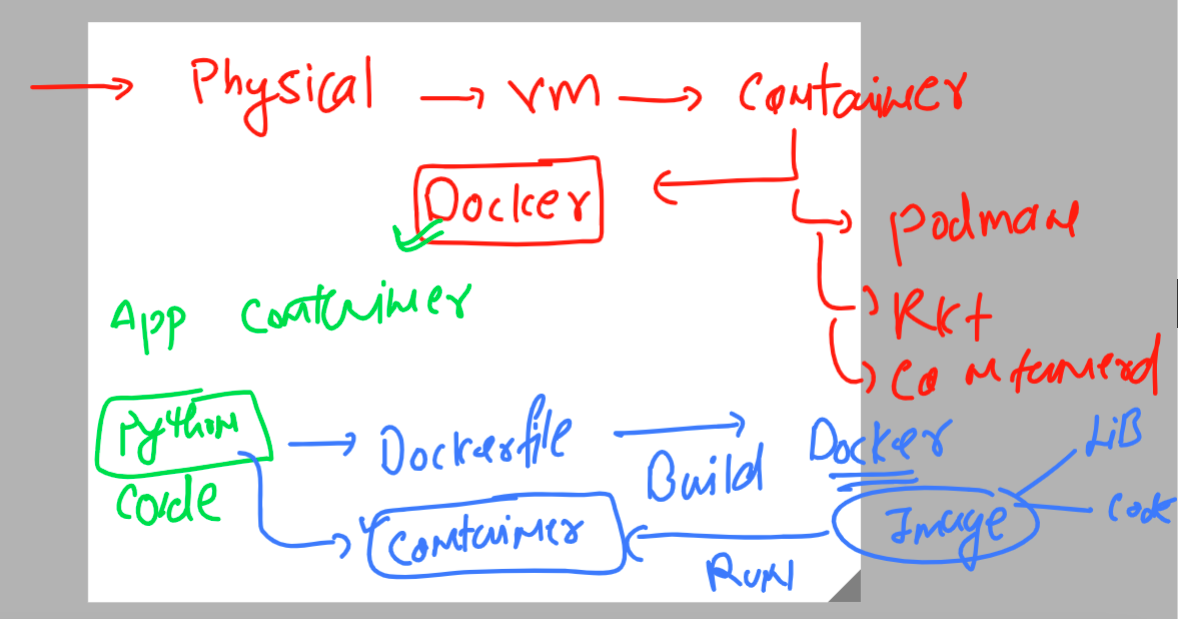 Physical → VM → Container
Docker
Podman
Rkt
Containerd
App container
Python
Code
Dockerfile
Build
Docker
Image
LiB
Code
Container
Run